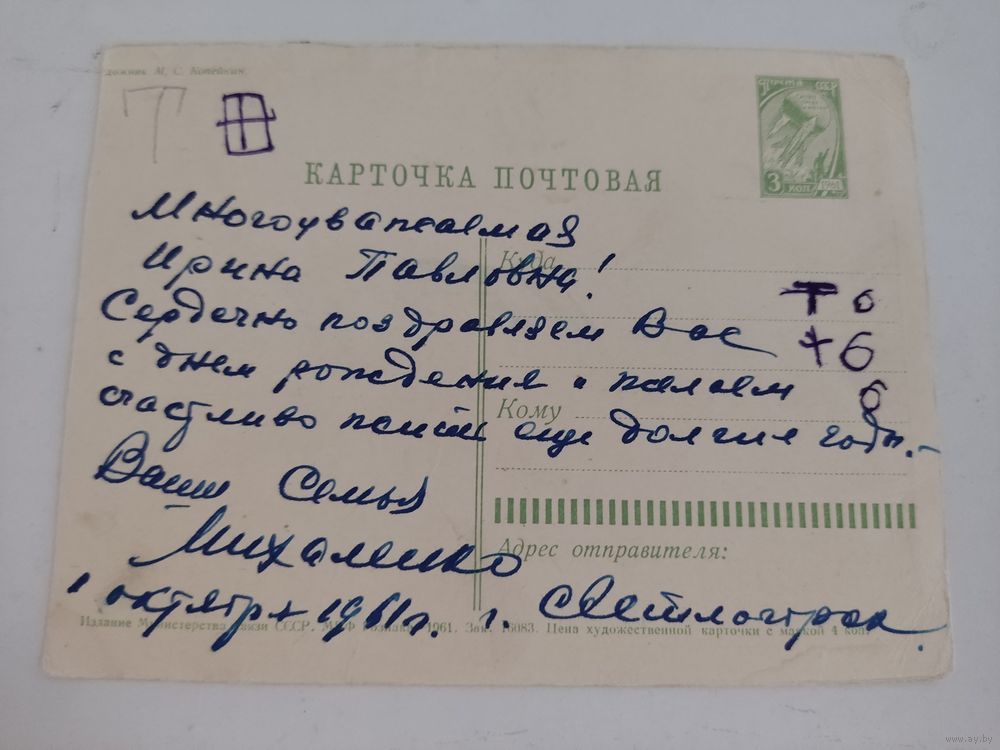 дожник М. С. Копейкин
Т
Почта СССР
3 коп 1961
КАРТОЧКА ПОЧТОВАЯ
Многоуважаемая
Ирина Павловна!
Куда
Сердечно поздравляем Вас
Т 6
+6
с днем рождения и желаем
6
Кому
счастливо жить еще долгие годы.-
Ваши Семья
Михаленко
Адрес отправителя:
1 октября 1961 г. г. Светлогорск.
Издание Министерства связи СССР. 1961. Зак. 16083. Цена художественной карточки с маркой 4 коп.
www.ay.by